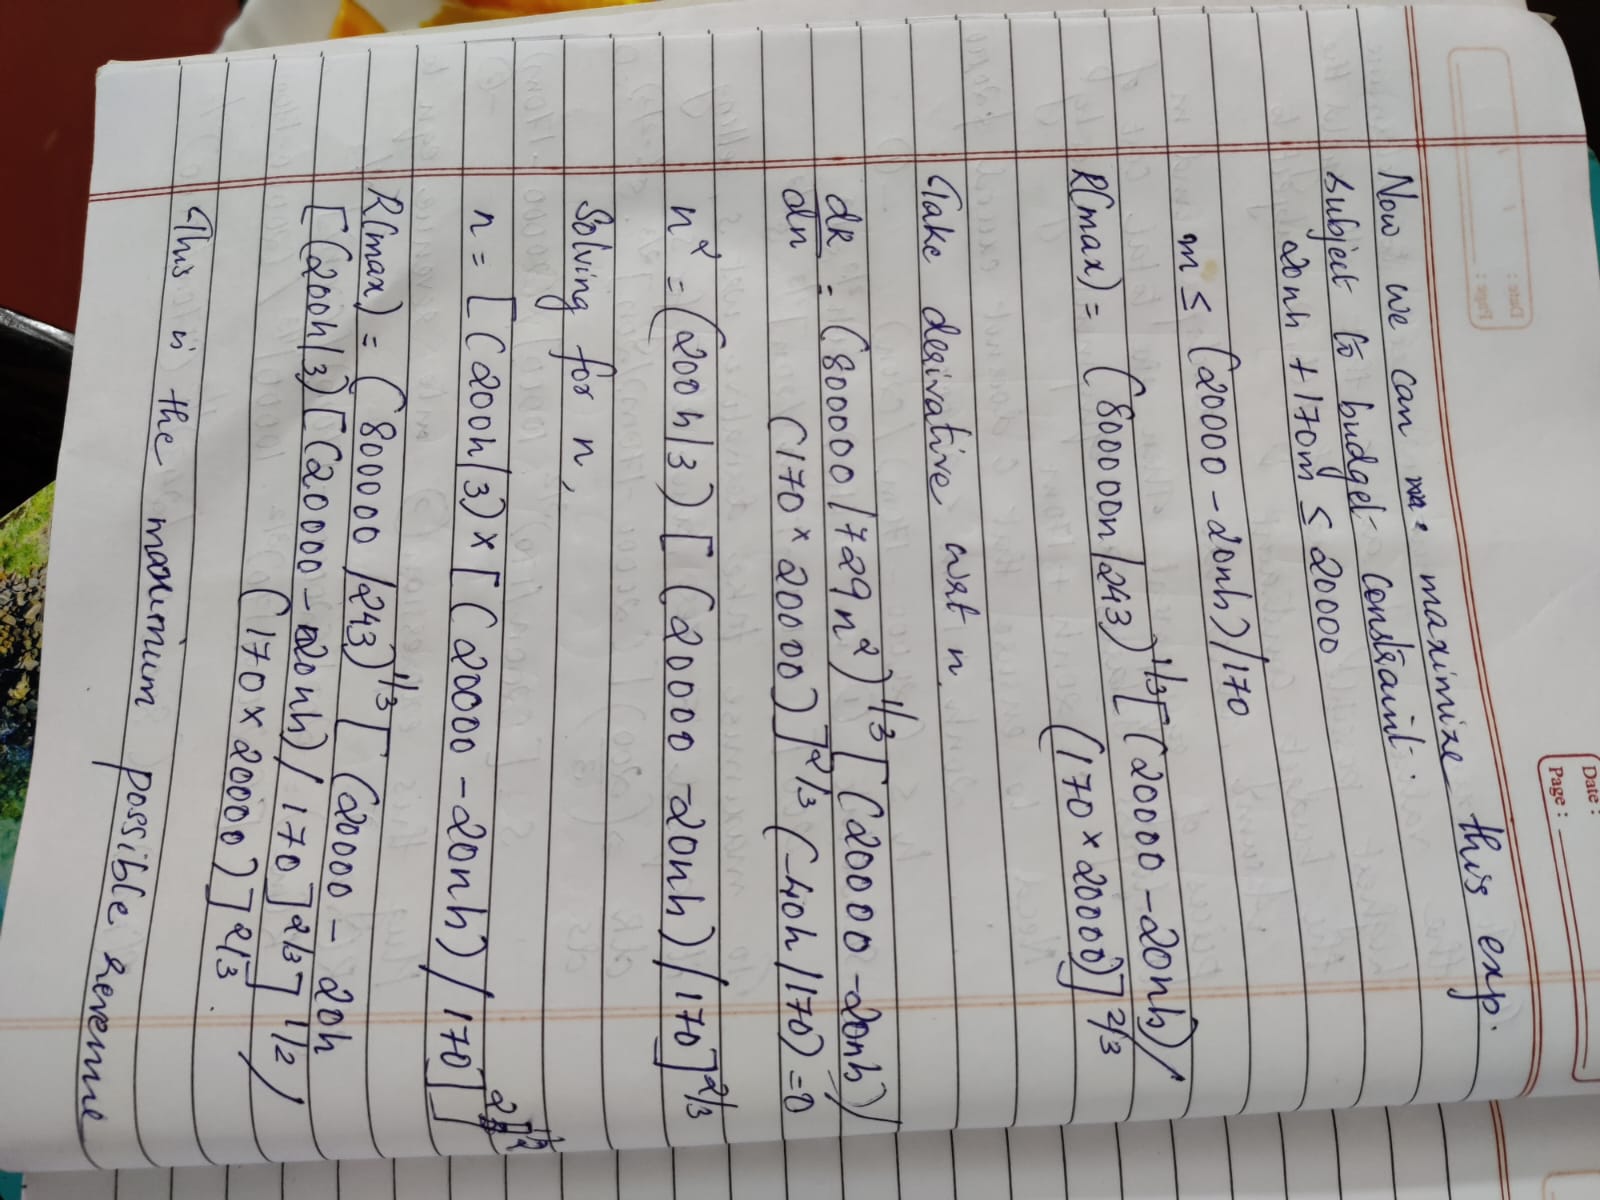 Date :
Page :
Now we can maximize this exp.
subject to budget constraint.
20nh + 170m ≤ 20000
m ≤ (20000 - 20nh)/170
R(max) = (800000n/243)^1/3 [(20000 - 20nh)/
(170 × 20000)]^2/3
Take derivative wrt n
dR/dn = (800000/729n²)^1/3 [(20000 - 20nh)/
(170 × 20000)]^2/3 (-40h/170) = 0
n² = (200h/3) [(20000 - 20nh)/170]^2/3
Solving for n,
n = [(200h/3) × [(20000 - 20nh)/170]
R(max) = (800000/243)^1/3 [(20000 - 20h
[(200h/3)[(20000 - 20nh)/170]^2/3]^1/2/
(170 × 20000)]^2/3.
This is the maximum possible revenue